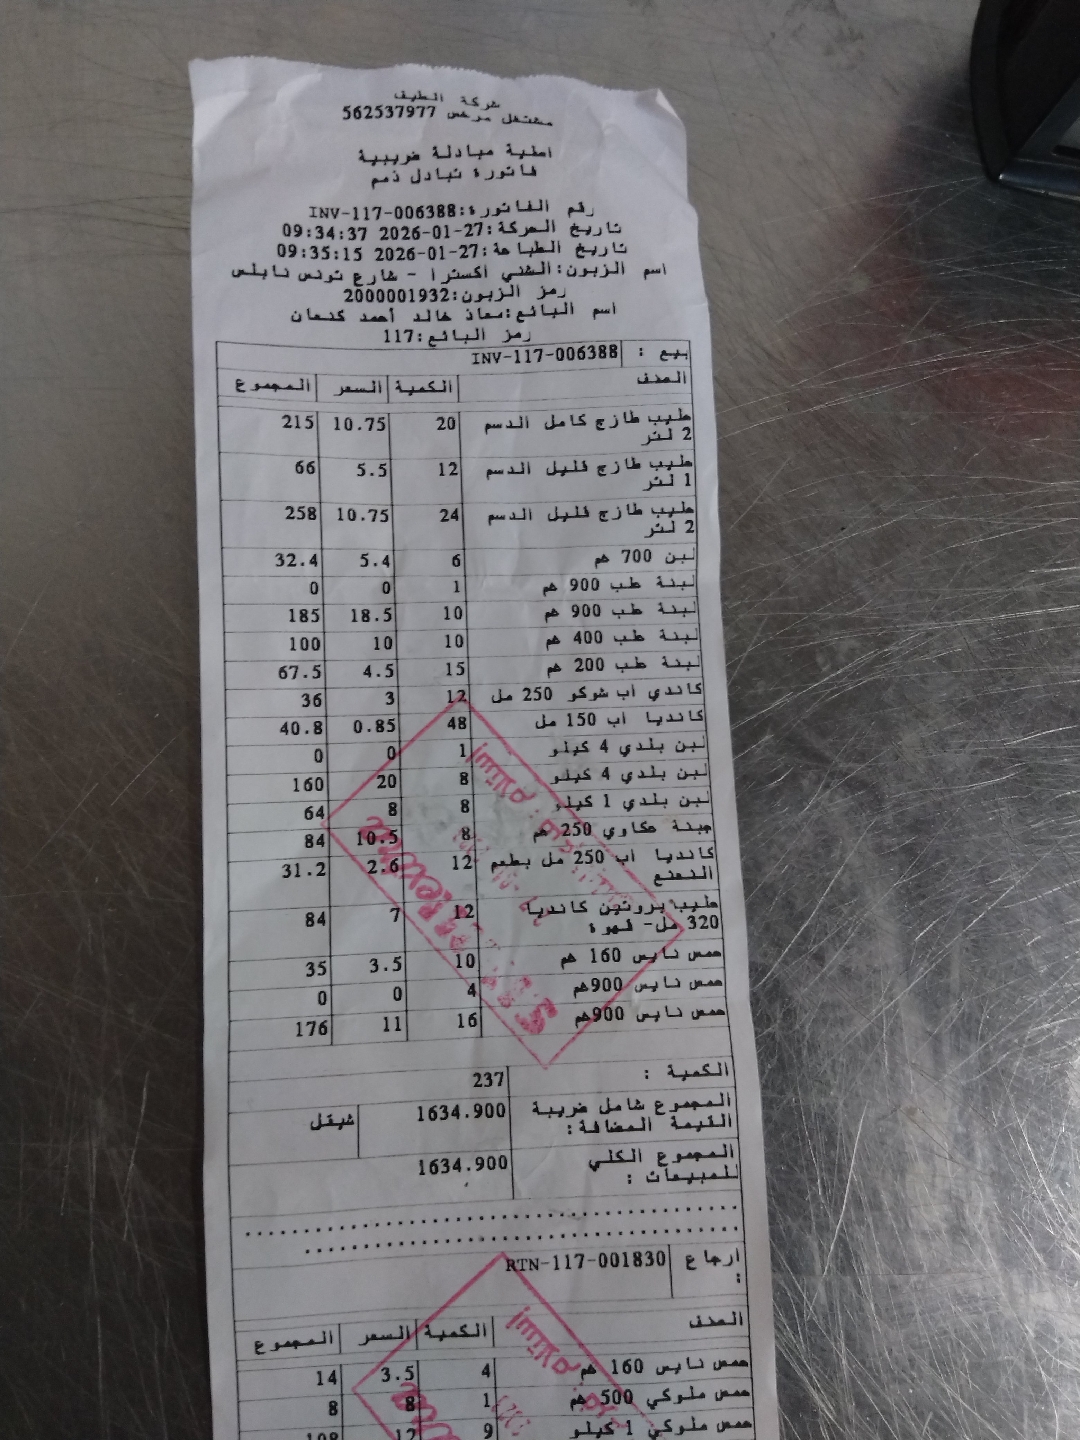 شركة الطيف
مشتغل مرخص 562537977
اصلية مبادلة ضريبية
فاتورة تبادل ذمم
رقم الفاتورة:INV-117-006388
تاريخ الحركة:27-01-2026 09:34:37
تاريخ الطباعة:27-01-2026 09:35:15
اسم الزبون:الشني اكسترا - شارع تونس نابلس
رمز الزبون:2000001932
اسم البائع:معاذ خالد أحمد كنعان
رمز البائع:117
بيع : INV-117-006388
الصنف الكمية السعر المجموع
حليب طازج كامل الدسم 20 10.75 215
2 لتر
حليب طازج قليل الدسم 12 5.5 66
1 لتر
حليب طازج قليل الدسم 24 10.75 258
2 لتر
لبن 700 غم 6 5.4 32.4
لبنة علب 900 غم 1 0 0
لبنة علب 900 غم 10 18.5 185
لبنة علب 400 غم 10 10 100
لبنة علب 200 غم 15 4.5 67.5
كاندي أب شوكو 250 مل 12 3 36
كانديا أب 150 مل 48 0.85 40.8
لبن بلدي 4 كيلو 1 0 0
لبن بلدي 4 كيلو 8 20 160
لبن بلدي 1 كيلو 8 8 64
جبنة عكاوي 250 غم 8 10.5 84
كانديا أب 250 مل بطعم 12 2.6 31.2
النعنع
حليب بروتين كانديا 12 7 84
320 مل- قهوة
حمص نايس 160 غم 10 3.5 35
حمص نايس 900غم 4 0 0
حمص نايس 900غم 16 11 176
الكمية : 237
المجموع شامل ضريبة 1634.900 شيقل
القيمة المضافة:
المجموع الكلي 1634.900
للمبيعات :
ارجاع RTN-117-001830
:
الصنف الكمية السعر المجموع
حمص نايس 160 غم 4 3.5 14
حمص ملوكي 500 غم 1 8 8
حمص ملوكي 1 كيلو 9 12 108